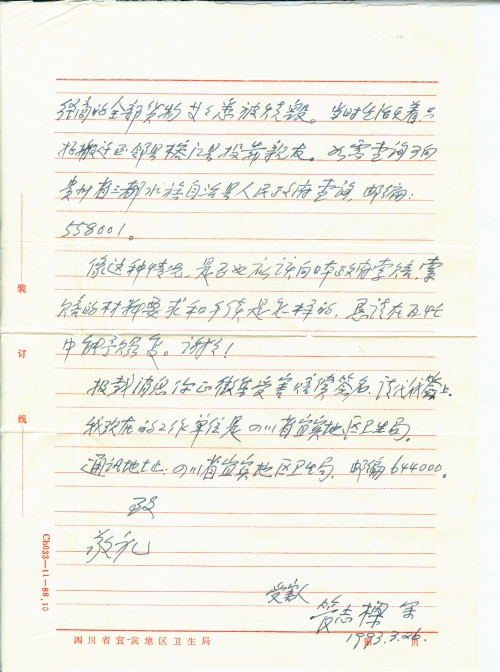 经商的全部货物 悉被烧毁。当时生活无着只
好搬迁还邻县榕江县投靠亲友。如需查询可向
贵州省三都水族自治县人民政府查询，邮编：
558001。
像这种情况，是否也应该向日本政府索赔，索
赔的材料要求和手续是怎样的，恳请在百忙
中 予 复。谢谢！
报载消息你正徵集受害 签名，请代 签上。
我现在的工作单位是四川省宜宾地区卫生局。
通讯地址：四川省宜宾地区卫生局，邮编644000。
致
敬礼
受害人
管志 
1993.3.26.
装
订
线
Ch033—11—88.10
四川省宜宾地区卫生局
第 页